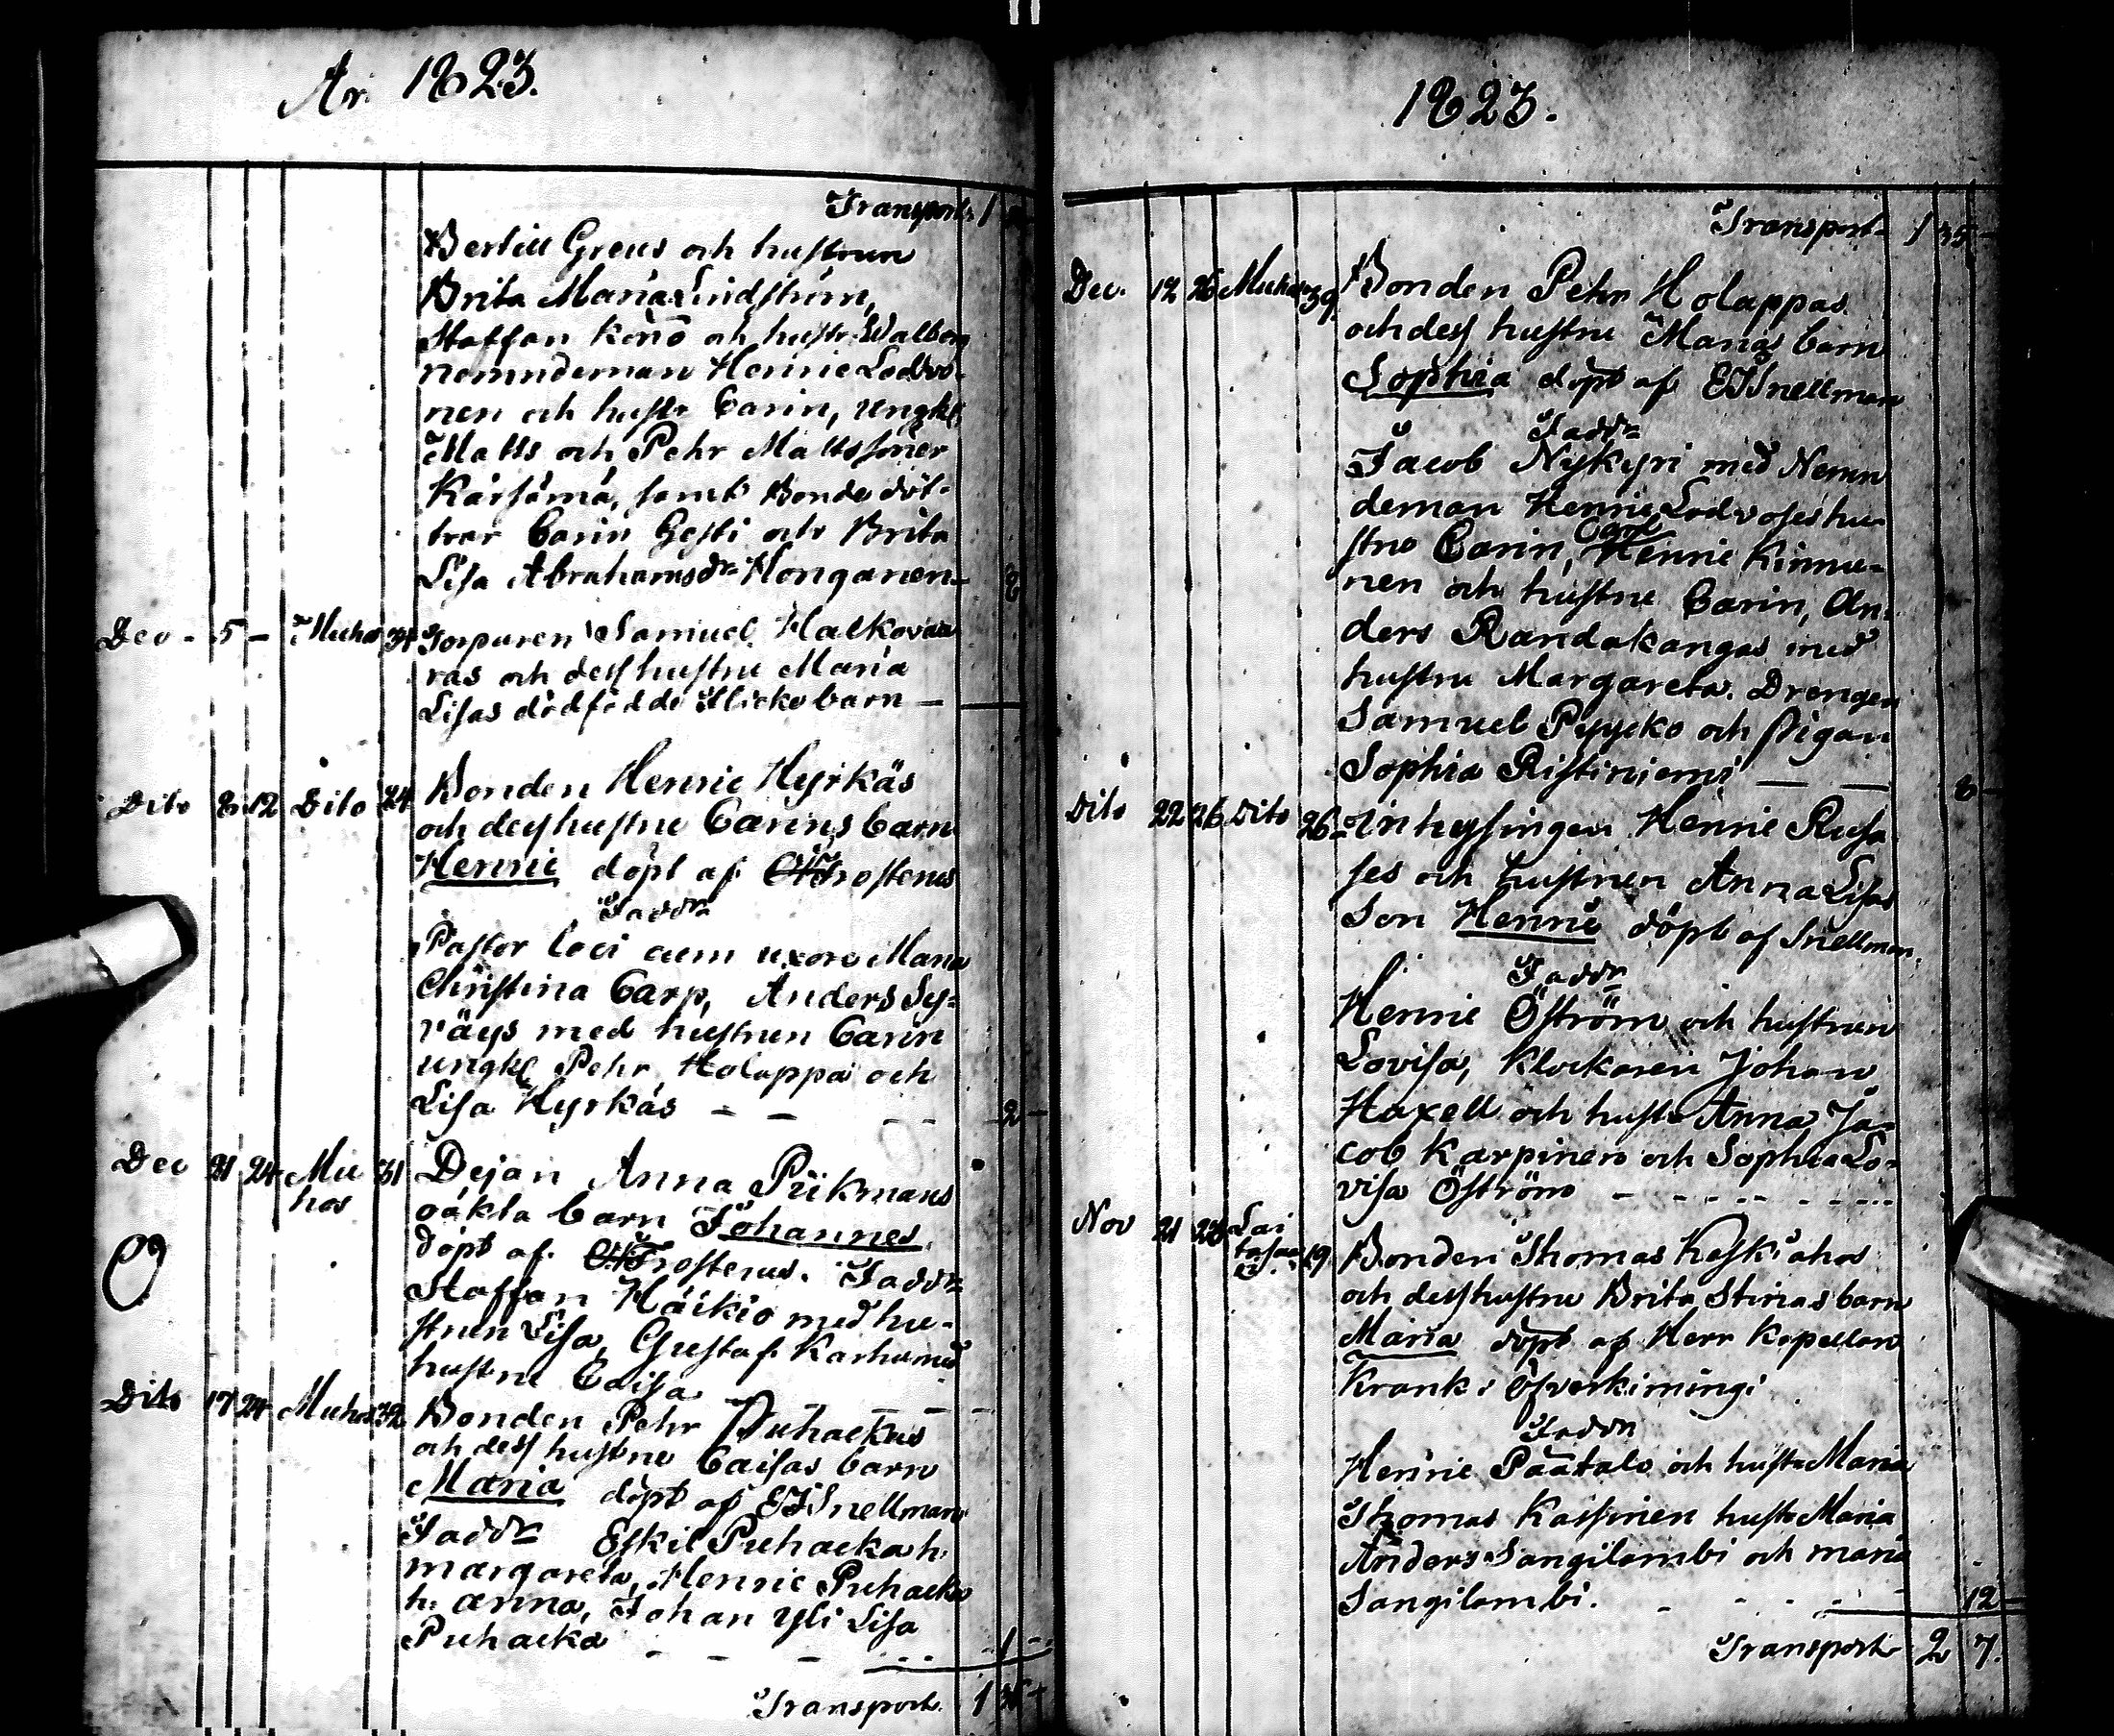 År 1823.
Transport 1
Bertill Greus och hustrun
Brita Maria Lindström,
Staffan Könö och hustr. Walborg
nemndeman Henric Lodvo-
nen och hustr Carin, ungkl
Matts och Pehr Mattssöner
Kärsämä, samt Bonde döt-
trar Carin Gesti och Brita
Lisa Abrahamsdr Honganen 8
Dec 5 - Muhos 34 Torparen Samuel Halkovaa
ras och dess hustru Maria
Lisas dödfödde Flickebarn -
Dito 8 12 Dito 24 Bonden Henric Hyrkäs
och dess hustru Carins barn
Henric döpt af Frosterus
Faddr
Pastor loci cum uxore Maria
Christina Carp, Anders Sy-
väys med hustrun Carin
ungkl Pehr Holappa och
Lisa Hyrkäs - - 2 -
Dec 21 24 Mu 31 Dejan Anna Piikmans
hos oäkta barn Johannes
döpt af Frosterus. Faddr
Staffan Häikiö med hu-
strun Lisa, Gustaf Karhu med
hustru Caisa
Dito 17 24 Muhos 32 Bonden Pehr Puhackas
och dess hustru Caisas barn
Maria döpt af EJSnellman
Faddr Eskil Puhacka h.
margareta, Henric Puhacka
h. anna, Johan Yli Lisa
Puhacka - - - 1 -
Transport 1
1823.
Transport 1 35 -
Dec. 12 26 Muhos 39 Bonden Pehr Holappas
och dess hustru Marias barn
Sophia döpt af EJSnellman
Faddr
Jacob Nykyri med Nemn
deman Henric Lodvoses hu-
stru Carin, Carl Henric Kinnu-
nen och hustru Carin, An-
ders Randakangas med
hustru Margareta. Drengen
Samuel Pyycko och pigan
Sophia Ristiniemi - - 8 -
Dito 22 26 Dito 26 Inhysingen Henric Rusa
ses och hustrun Anna Lisas
Son Henric döpt af Snellman
Faddr
Henric Öström och hustrun
Lovisa, Klockaren Johan
Haxell och hustr Anna Ja-
cob Karpinen och Sophia Lo-
visa Öström - - - - -
Nov 21 23 Lai 19 Bonden Thomas Keskiahos
och dess hustru Brita Stinas barn
Maria döpt af Herr Kapellan
Krank i Öfverkiimingi
Faddr
Henric Päätalo och hustr Maria
Thomas Kassinen hustr Maria
Anders Sangilambi och maria
Sangilambi. - - - 12 -
Transport 2 7.